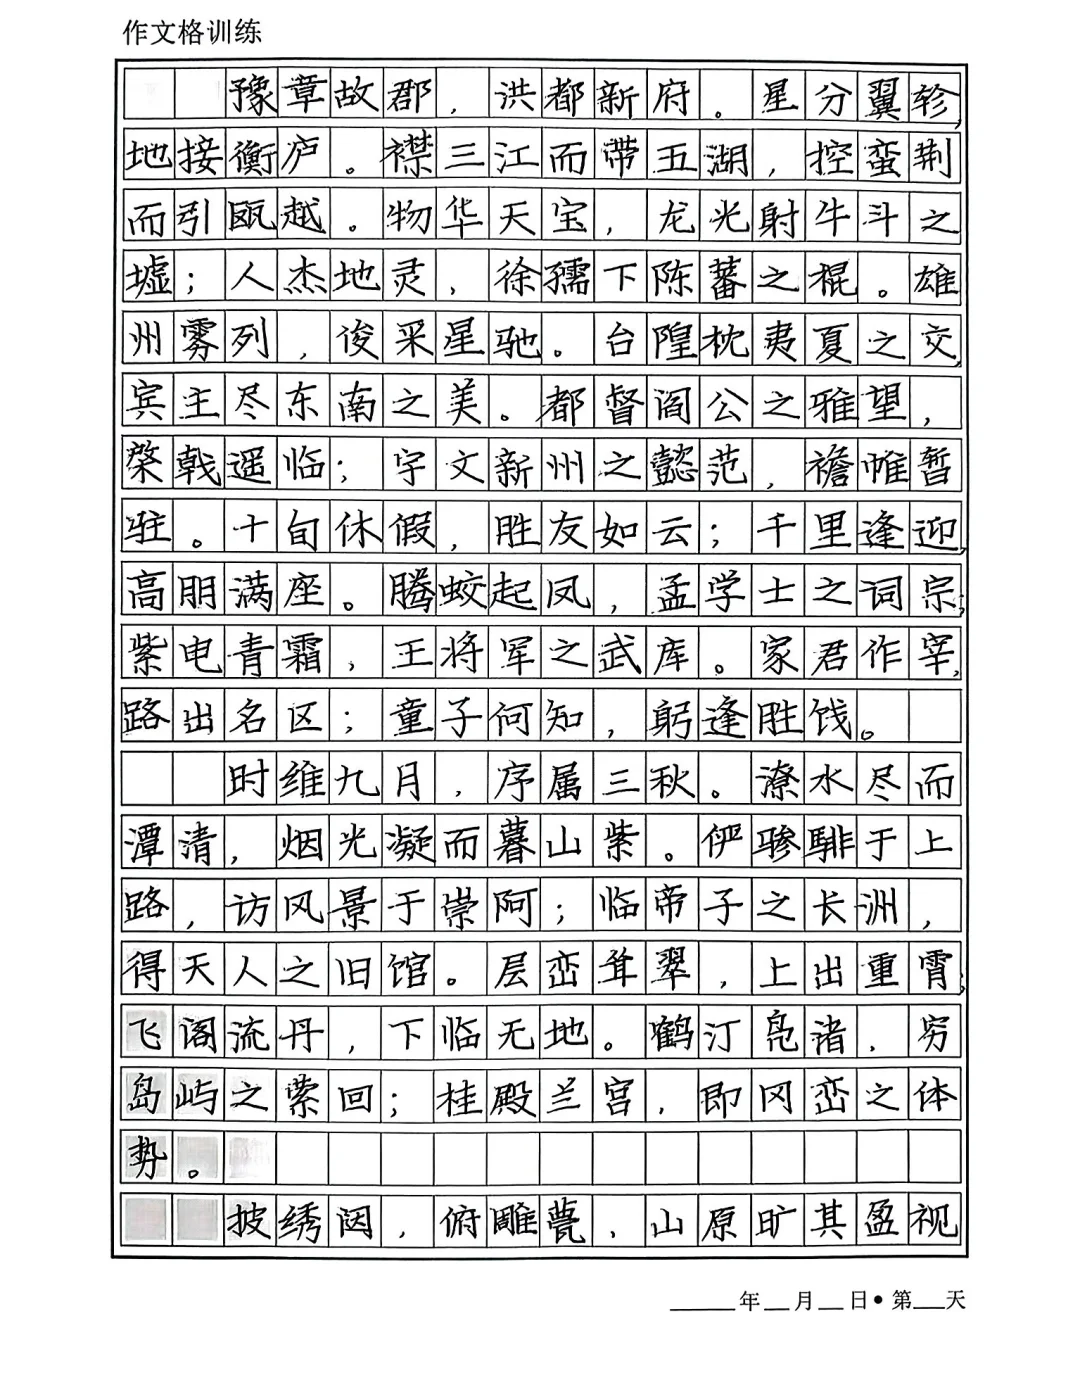 作文格训练
豫章故郡，洪都新府。星分翼轸，
地接衡庐。襟三江而带五湖，控蛮荆
而引瓯越。物华天宝，龙光射牛斗之
墟；人杰地灵，徐孺下陈蕃之榻。雄
州雾列，俊采星驰。台隍枕夷夏之交，
宾主尽东南之美。都督阎公之雅望，
棨戟遥临；宇文新州之懿范，襜帷暂
驻。十旬休假，胜友如云；千里逢迎，
高朋满座。腾蛟起凤，孟学士之词宗；
紫电青霜，王将军之武库。家君作宰，
路出名区；童子何知，躬逢胜饯。
时维九月，序属三秋。潦水尽而
潭清，烟光凝而暮山紫。俨骖騑于上
路，访风景于崇阿；临帝子之长洲，
得天人之旧馆。层峦耸翠，上出重霄；
飞阁流丹，下临无地。鹤汀凫渚，穷
岛屿之萦回；桂殿兰宫，即冈峦之体
势。
披绣闼，俯雕甍，山原旷其盈视
年 月 日•第 天